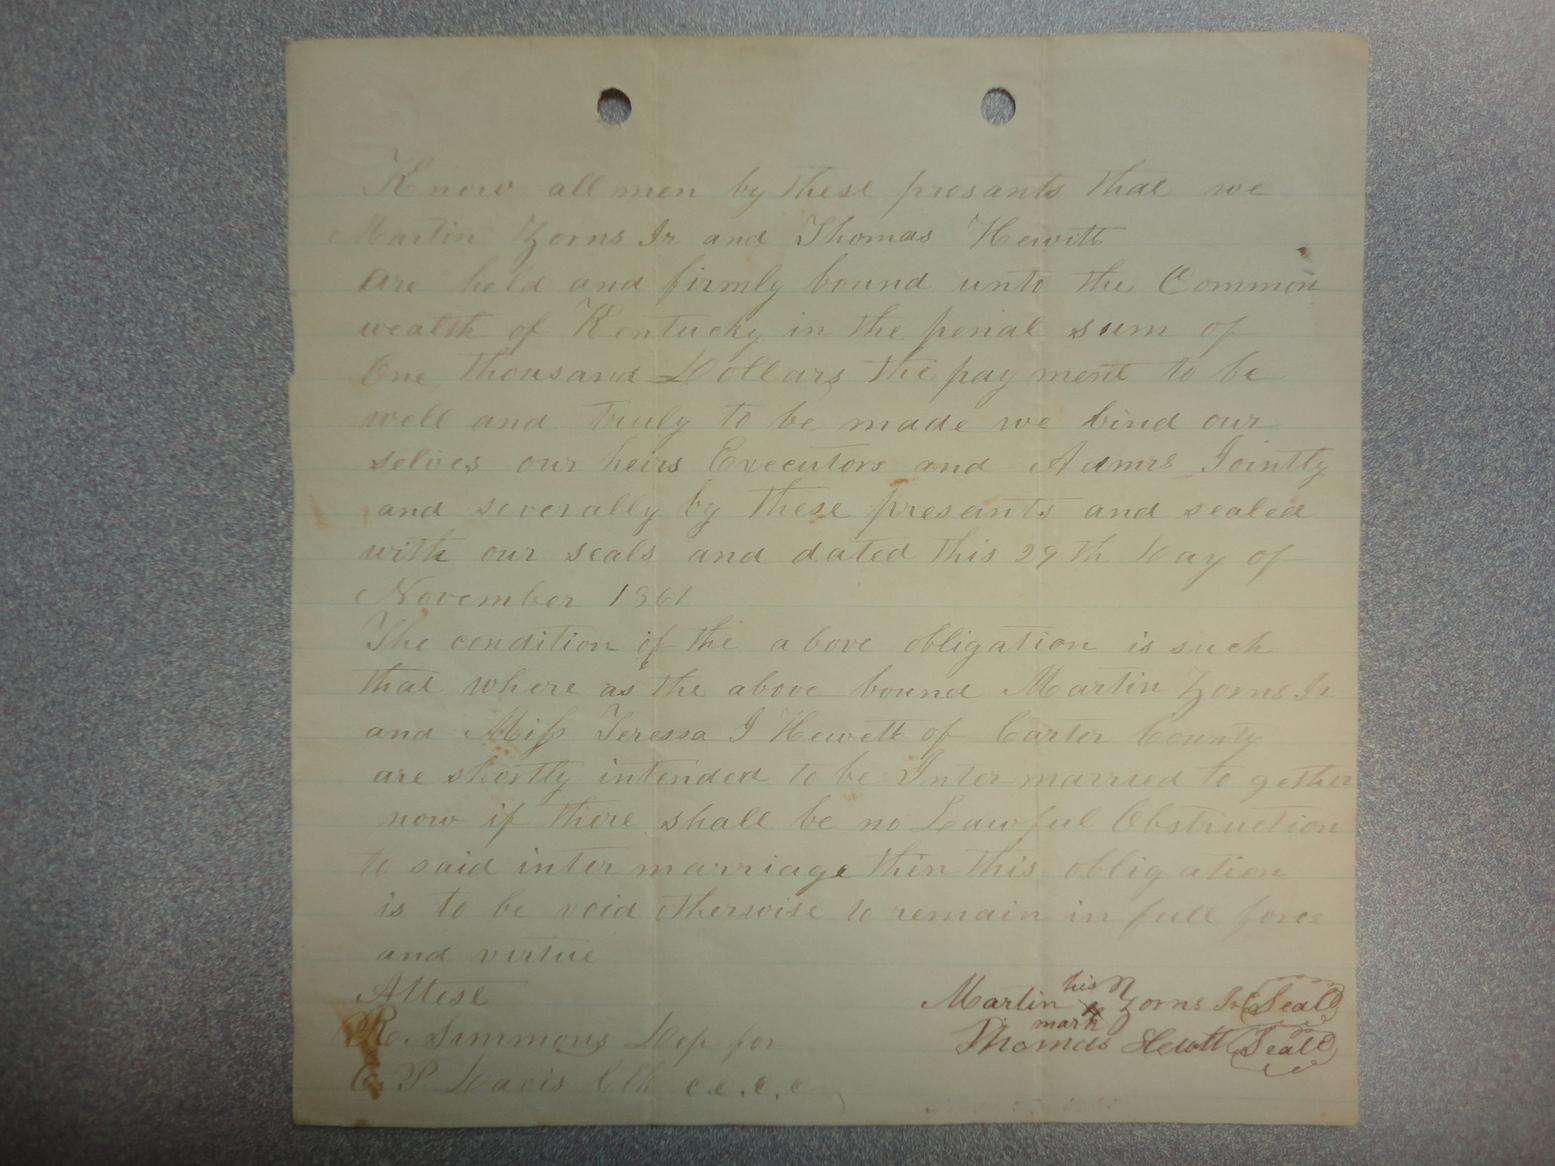 Know all men by these presants that we
Martin Zorns Jr and Thomas Hewitt
are held and firmly bound unto the Common
wealth of Kentucky in the penal sum of
One thousand Dollars the payment to be
well and truly to be made we bind our
selves our heirs Executors and Admrs Jointly
and severally by these presants and sealed
with our seals and dated this 29th Day of
November 1861
The condition of the above obligation is such
that where as the above bound Martin Zorns Jr
and Miss Teressa J Hewett of Carter County
are shortly intended to be Inter married to gether
now if there shall be no Lawful Obstruction
to said inter marriage then this obligation
is to be void otherwise to remain in full force
and virtue
Attest
his
Martin x Zorns Jr Seal
mark
R. Simmons Dep for
Thomas Hewtt Seal
C. P. Davis Clk c.c.c.c